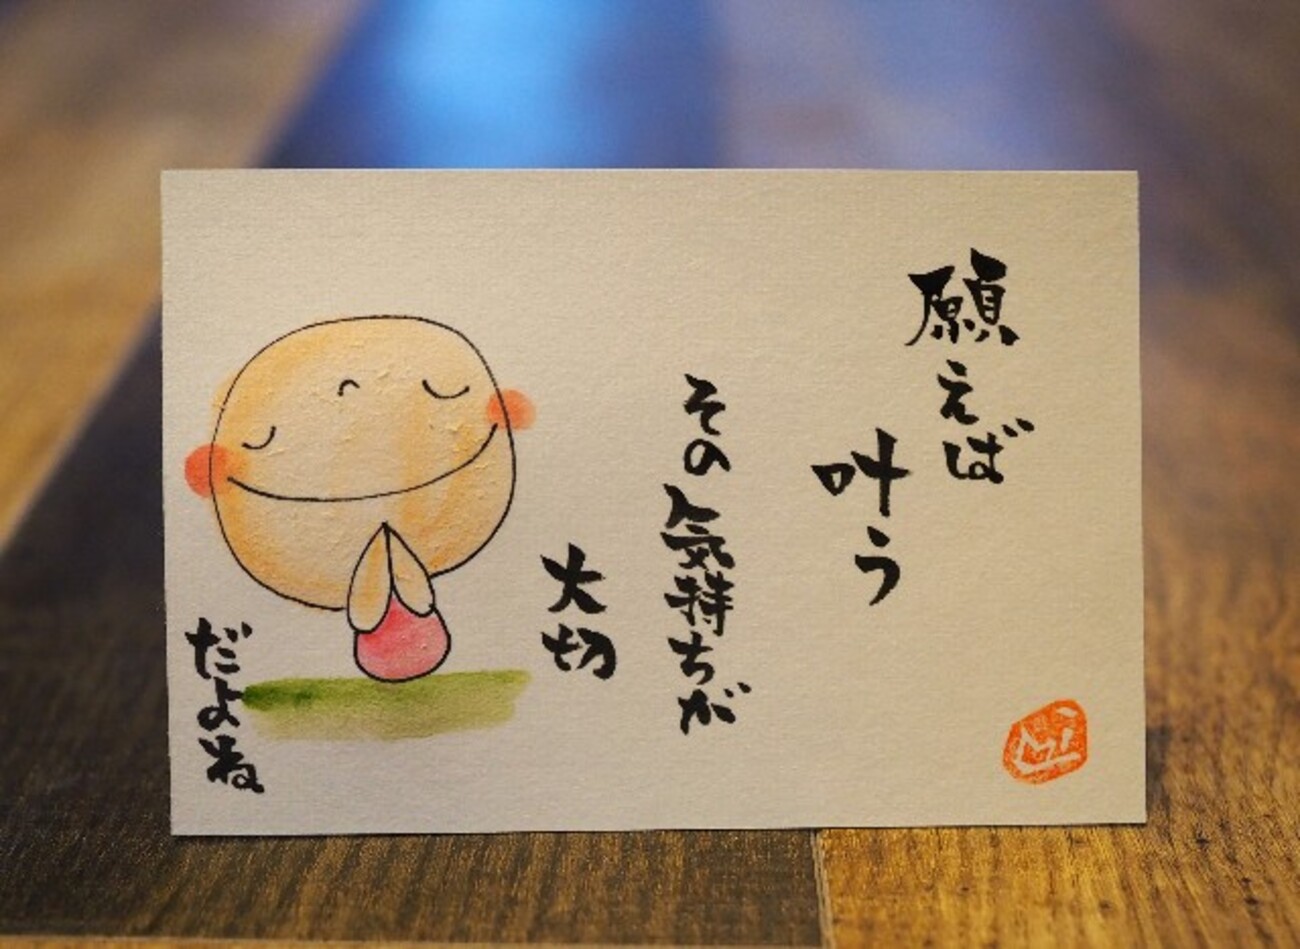 願えば
叶う
その気持ちが
大切
だよね